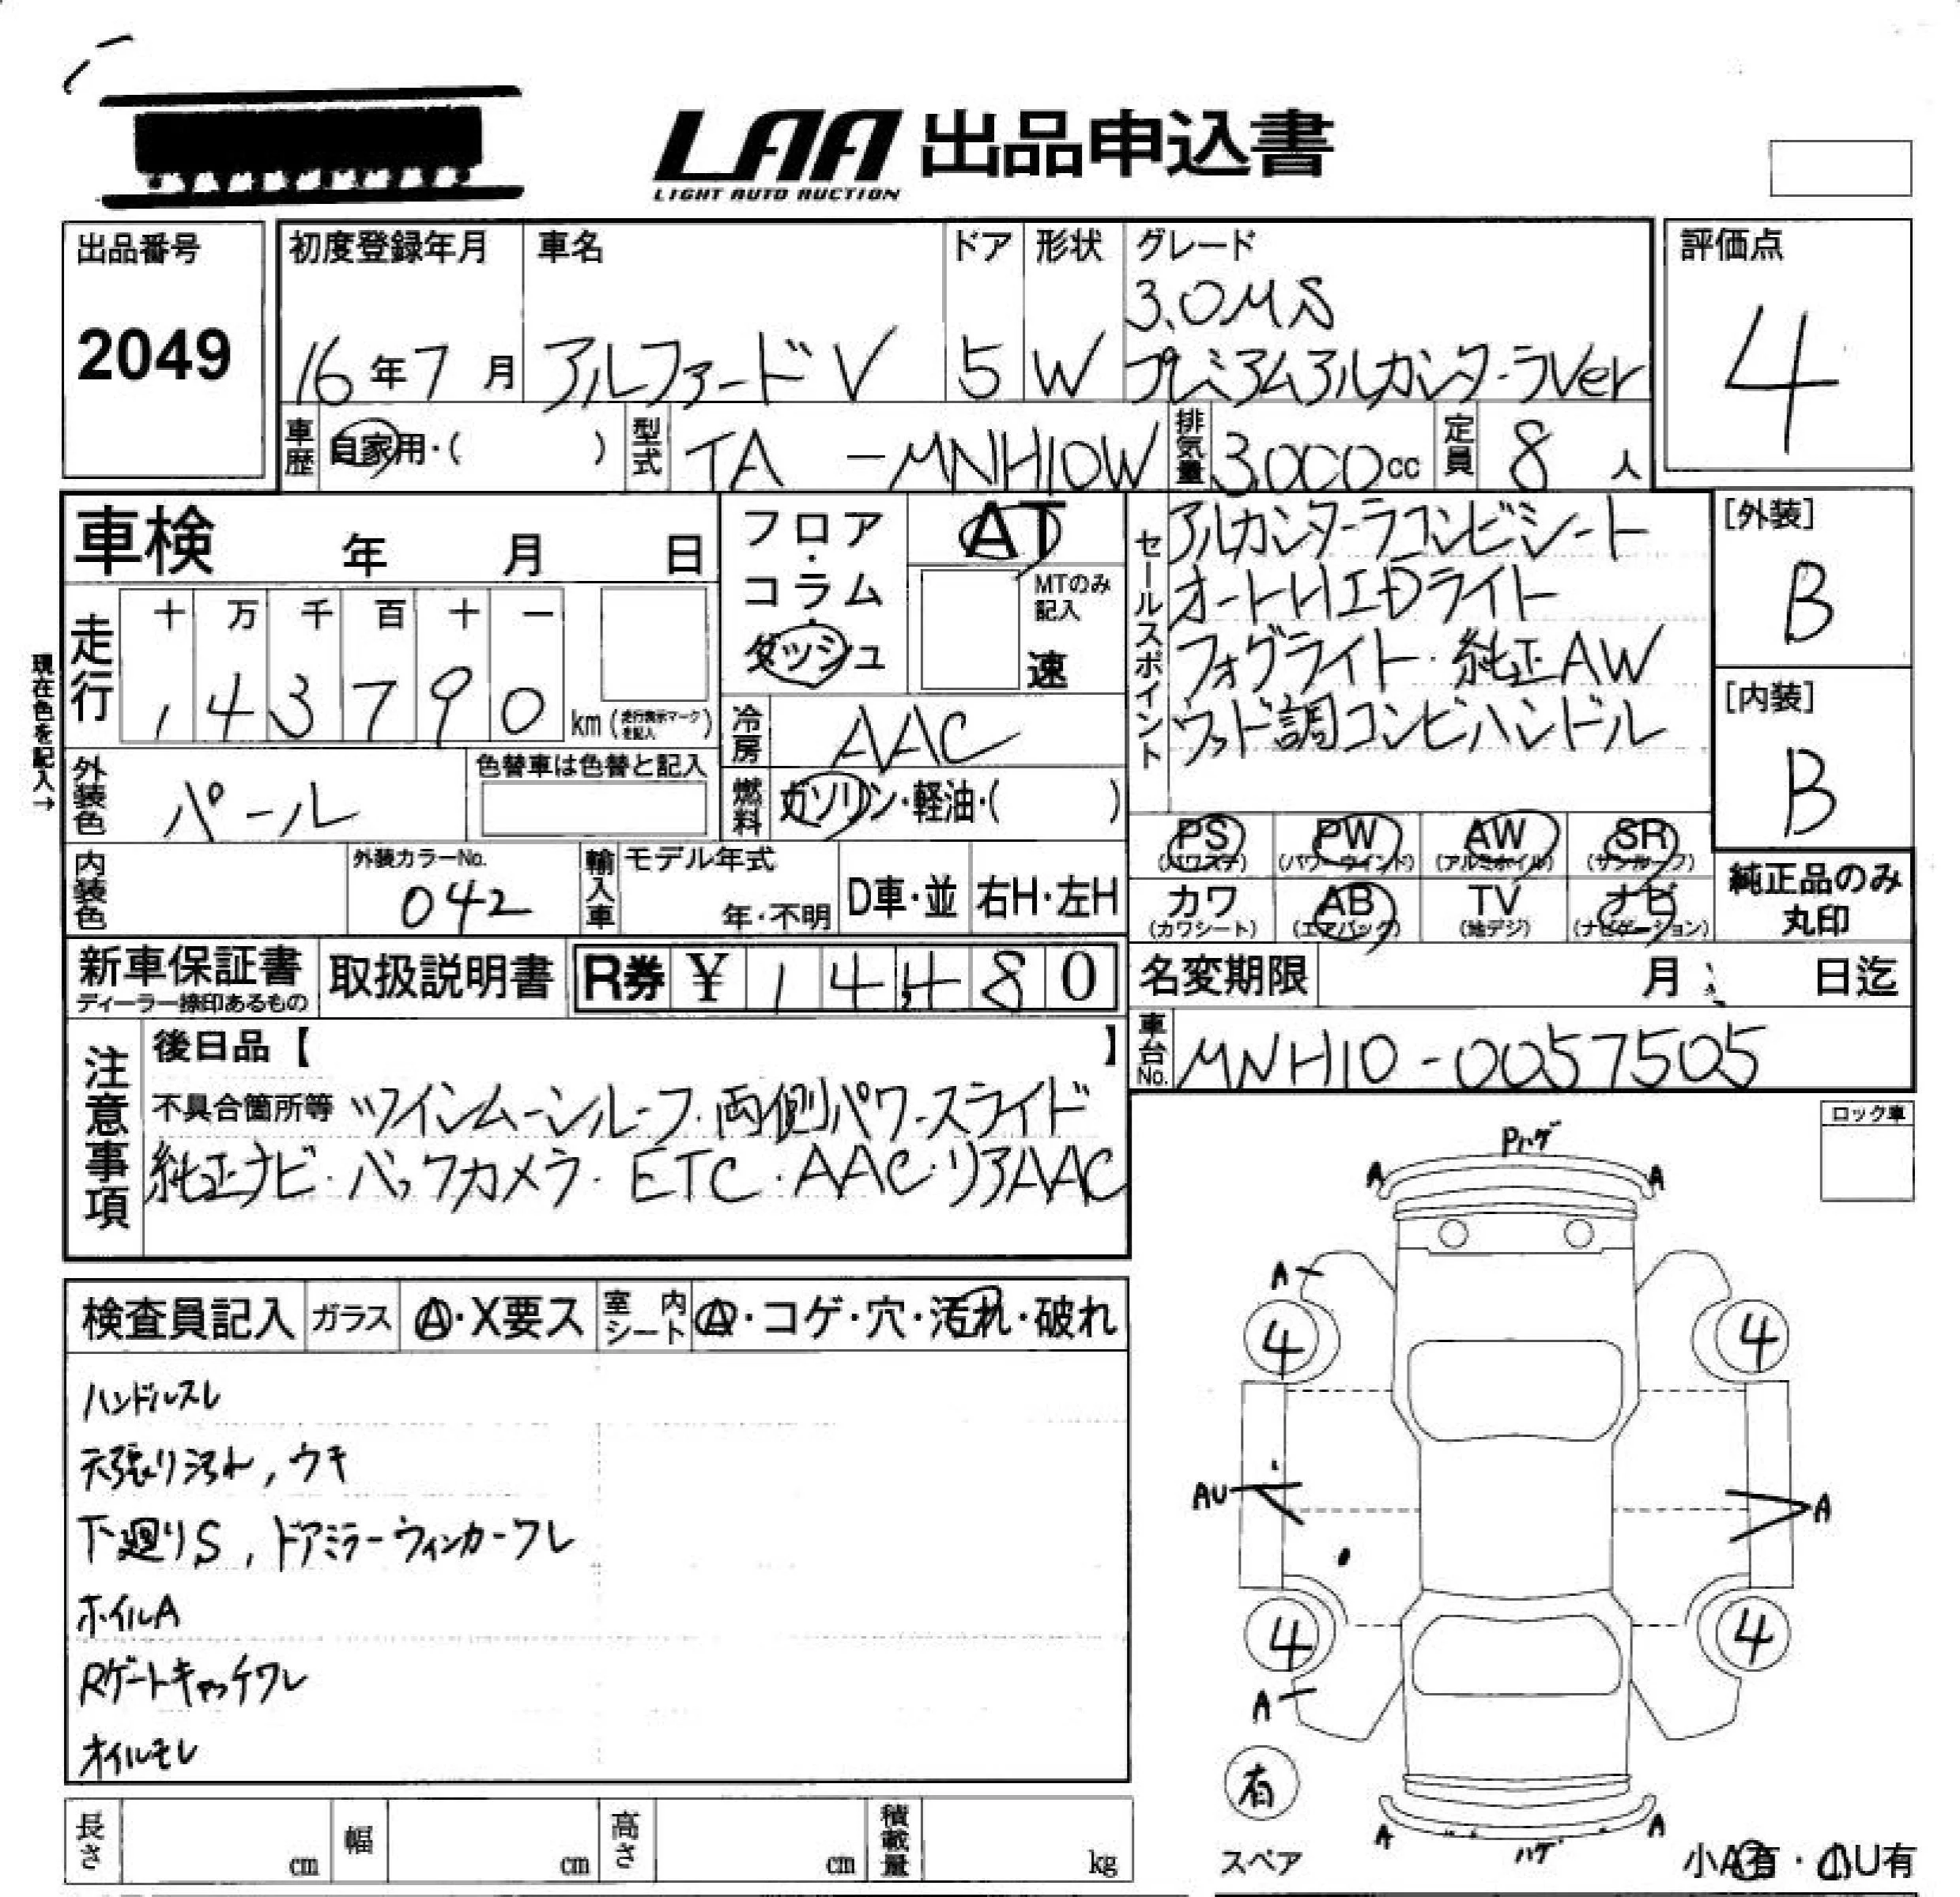 LAA 出品申込書
LIGHT AUTO AUCTION
出品番号
2049
初度登録年月
16年7月
車名
アルファードV
ドア
5
形状
W
グレード
3.0MS
プレミアムアルカンターラVer
評価点
4
車歴
自家用・( )
型式
TA -MNH10W
排気量
3,000cc
定員
8人
車検 年 月 日
フロア・コラム・ダッシュ
AT
MTのみ記入
速
セールスポイント
アルカンターラコンビシート
オートHIDライト
フォグライト・純正AW
ウッド調コンビハンドル
[外装]
B
[内装]
B
現在色を記入→
走行
十 万 千 百 十 一
1 4 3 7 9 0 km (走行表示マークを記入)
冷房
AAC
外装色
パール
色替車は色替と記入
燃料
ガソリン・軽油・( )
内装色
外装カラーNo.
042
輸入車
モデル年式
年・不明
D車・並
右H・左H
PS (パワステ)
PW (パワーウインド)
AW (アルミホイル)
SR (サンルーフ)
カワ (カワシート)
AB (エアバッグ)
TV (地デジ)
ナビ (ナビゲーション)
純正品のみ
丸印
新車保証書
ディーラー捺印あるもの
取扱説明書
R券 ¥ 14,480
名変期限 月 日迄
車台No.
MNH10-0057505
注意事項
後日品【 】
不具合箇所等 ツインムーンルーフ・両側パワースライド
純正ナビ・バックカメラ・ETC・AAC・リアAAC
ロック車
検査員記入
ガラス
A・X要ス
室内シート
A・コゲ・穴・汚れ・破れ
ハンドルスレ
天張り汚れ,ウキ
下廻りS,ドアミラーウィンカーワレ
ホイルA
Rゲートキャッチワレ
オイルモレ
Pハゲ
A A
A
4 4
AU A
4 4
A
有
スペア
A ハゲ A
小A有・小U有
長さ cm
幅 cm
高さ cm
積載量 kg